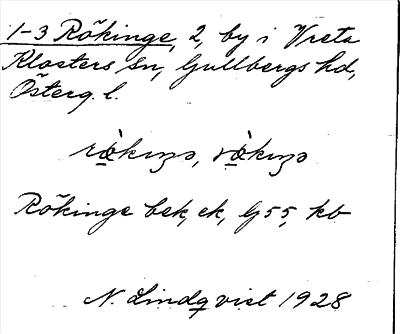 1-3 Rökinge, 2, by i Vreta
Klosters sn, Gullbergs hd,
Österg. l.
rö̀kıŋə, rö̀kıŋə
Rökinge bek, ek, G55, kb
N. Lindqvist 1928